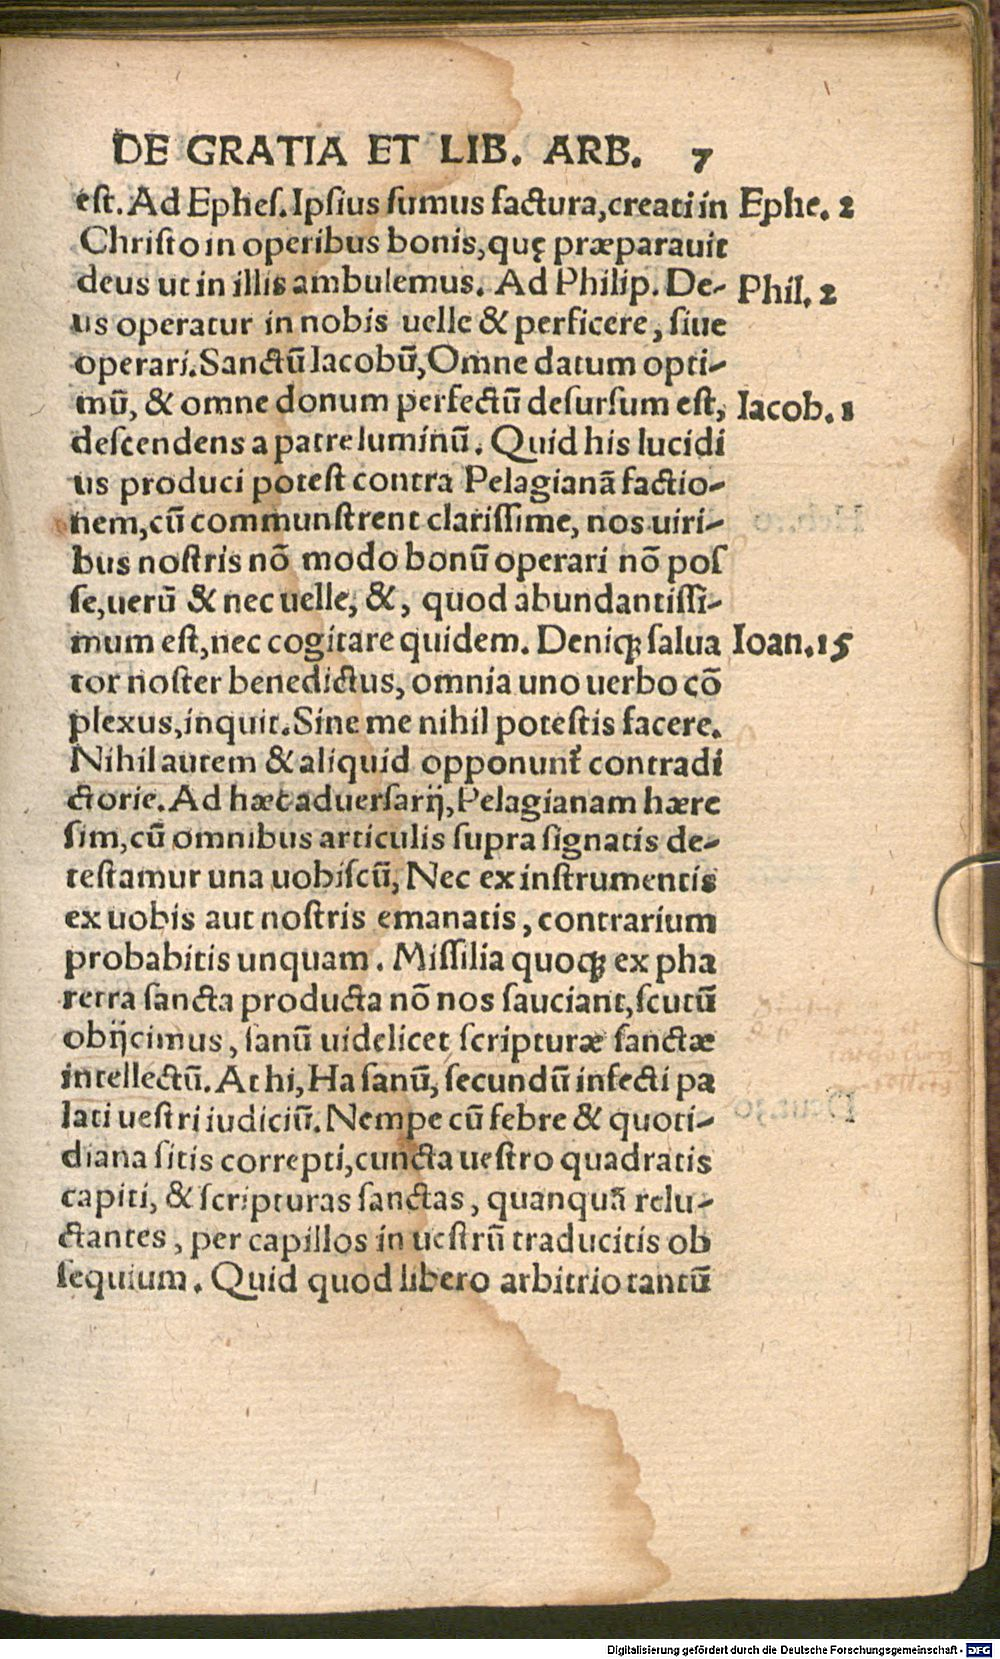 DE GRATIA ET LIB. ARB. 7
est. Ad Ephes. Ipsius sumus factura, creati in Ephe. 2
Christo in operibus bonis, quę præparauit
deus ut in illis ambulemus. Ad Philip. De- Phil. 2
us operatur in nobis uelle & perficere, siue
operari. Sanctū Iacobū, Omne datum opti-
mū, & omne donum perfectū desursum est, Iacob. 1
descendens a patre luminū. Quid his lucidi
us produci potest contra Pelagianā factio-
nem, cū communstrent clarissime, nos uiri-
bus nostris nō modo bonū operari nō pos
se, uerū & nec uelle, &, quod abundantissi-
mum est, nec cogitare quidem. Deniqꝫ salua Ioan. 15
tor noster benedictus, omnia uno uerbo cō
plexus, inquit. Sine me nihil potestis facere.
Nihil autem & aliquid opponunt᷑ contradi
ctorie. Ad hæc aduersarij, Pelagianam hære
sim, cū omnibus articulis supra signatis de-
testamur una uobiscū, Nec ex instrumentis
ex uobis aut nostris emanatis, contrarium
probabitis unquam. Missilia quoqꝫ ex pha
retra sancta producta nō nos sauciant, scutū
obijcimus, sanū uidelicet scripturæ sanctæ
intellectū. At hi, Ha sanū, secundū infecti pa
lati uestri iudiciū. Nempe cū febre & quoti-
diana sitis correpti, cuncta uestro quadratis
capiti, & scripturas sanctas, quanquā relu-
ctantes, per capillos in uestrū traducitis ob
sequium. Quid quod libero arbitrio tantū
Digitalisierung gefördert durch die Deutsche Forschungsgemeinschaft - DFG